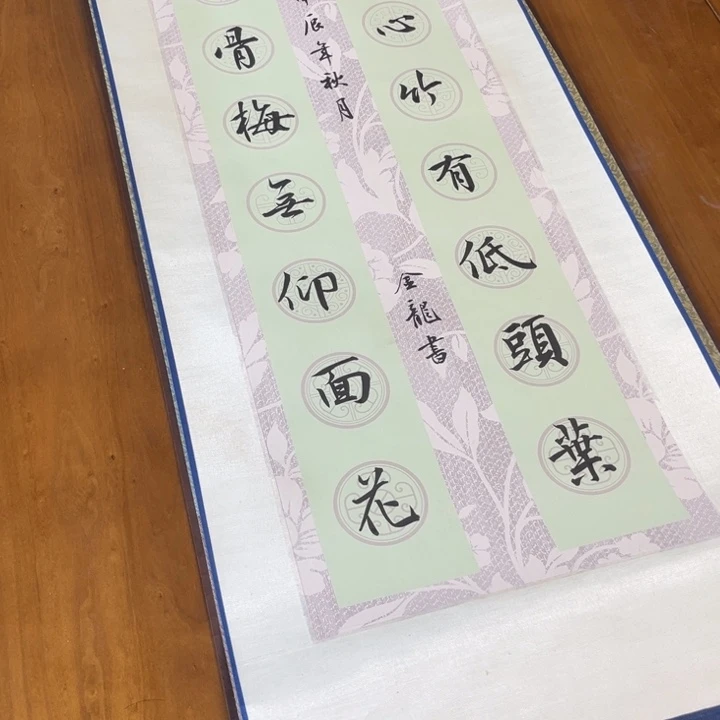 心竹有低頭葉
骨梅無仰面花
辰年秋月
金龍書